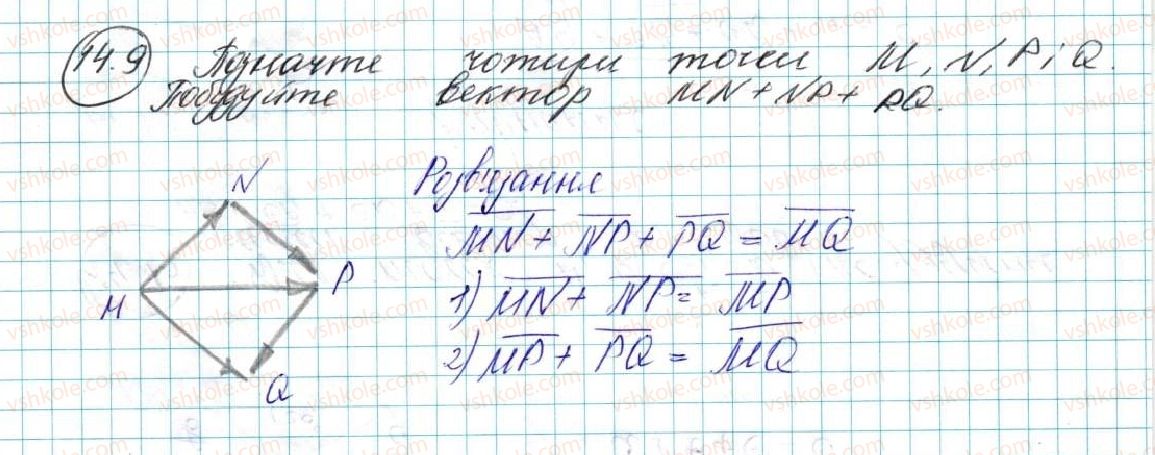 14.9 Позначте чотири точки M, N, P і Q.
Побудуйте вектор MN + NP + PQ.
Розв'язання
N
MN + NP + PQ = MQ
P
1) MN + NP = MP
M
2) MP + PQ = MQ
Q